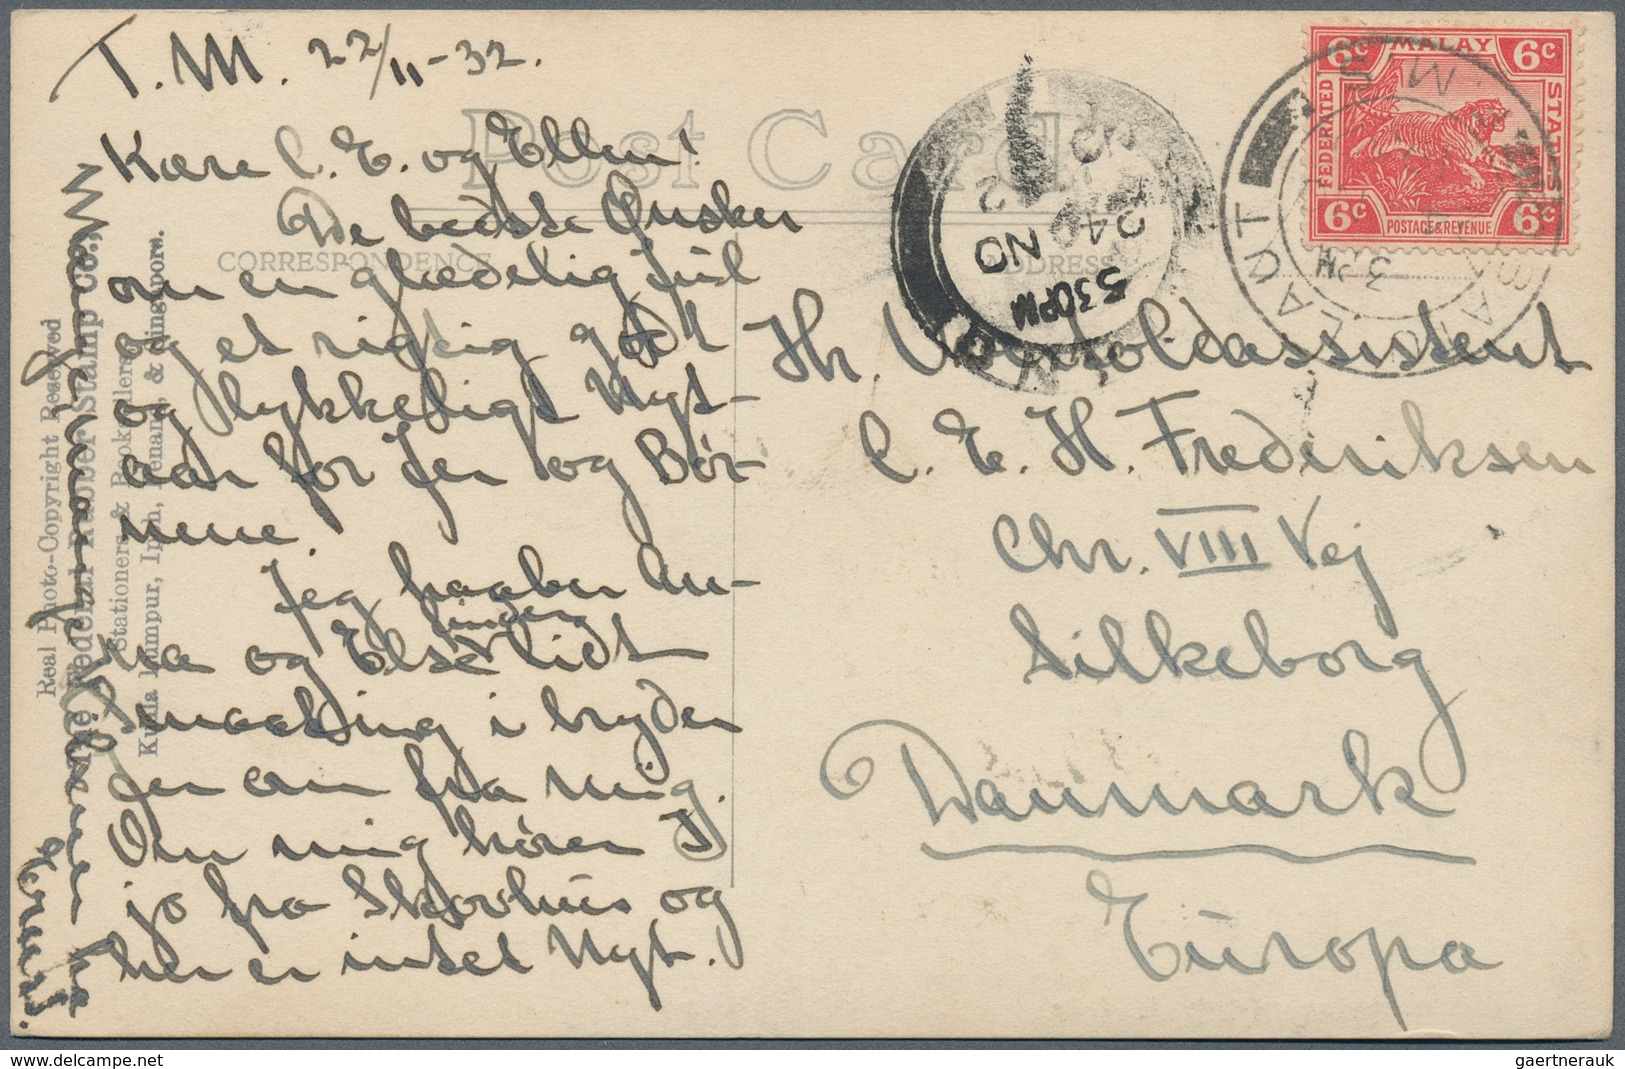 T. M. 22/11-32.
Post Card
CORRESPONDENCE
ADDRESS
Kære C. E. og Ellen!
De bedste Ønsker
om en glædelig Jul
og et rigtig godt
og lykkeligt Nyt-
aar for Jer og Bør-
nene.
Jeg haaber An-
na og Else finder lidt
Smaating i bryder
jer om fra mig.
Om mig hører I
jo fra Skovhus og
her er intet Nyt.
Mange
Hilsener fra
Hr. Toldassistent
C. E. H. Frederiksen
Chr. VIII Vej
Silkeborg
Danmark
Europa
Real Photo-Copyright Reserved
The Federal Rubber Stamp Co.,
Stationers & Booksellers
Kuala Lumpur, Ipoh, Penang, & Singapore.
MALAY
FEDERATED
STATES
6c 6c
6c 6c
POSTAGE & REVENUE
3 PM
LAUT
5 30PM
24 NO
32
gaertnerauk